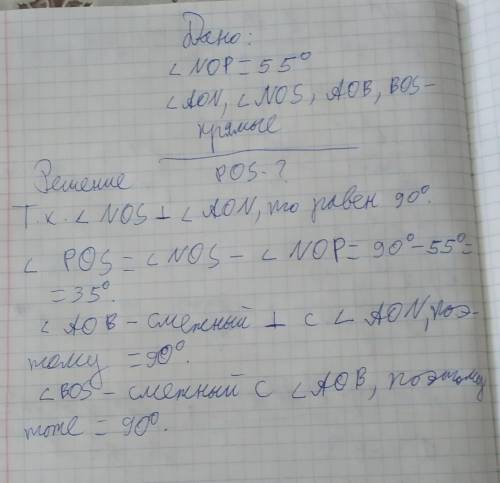 Дано:
∠NOP = 55°
∠AON, ∠NOS, AOB, BOS-
прямые
POS-?
Решение
Т.к. ∠NOS ⊥ ∠AON, то равен 90°.
∠ POS = ∠NOS - ∠NOP = 90° - 55° =
= 35°.
∠AOB - смежный ⊥ с ∠AON, поэ-
тому = 90°.
∠BOS - смежный с ∠AOB, поэтому
тоже = 90°.